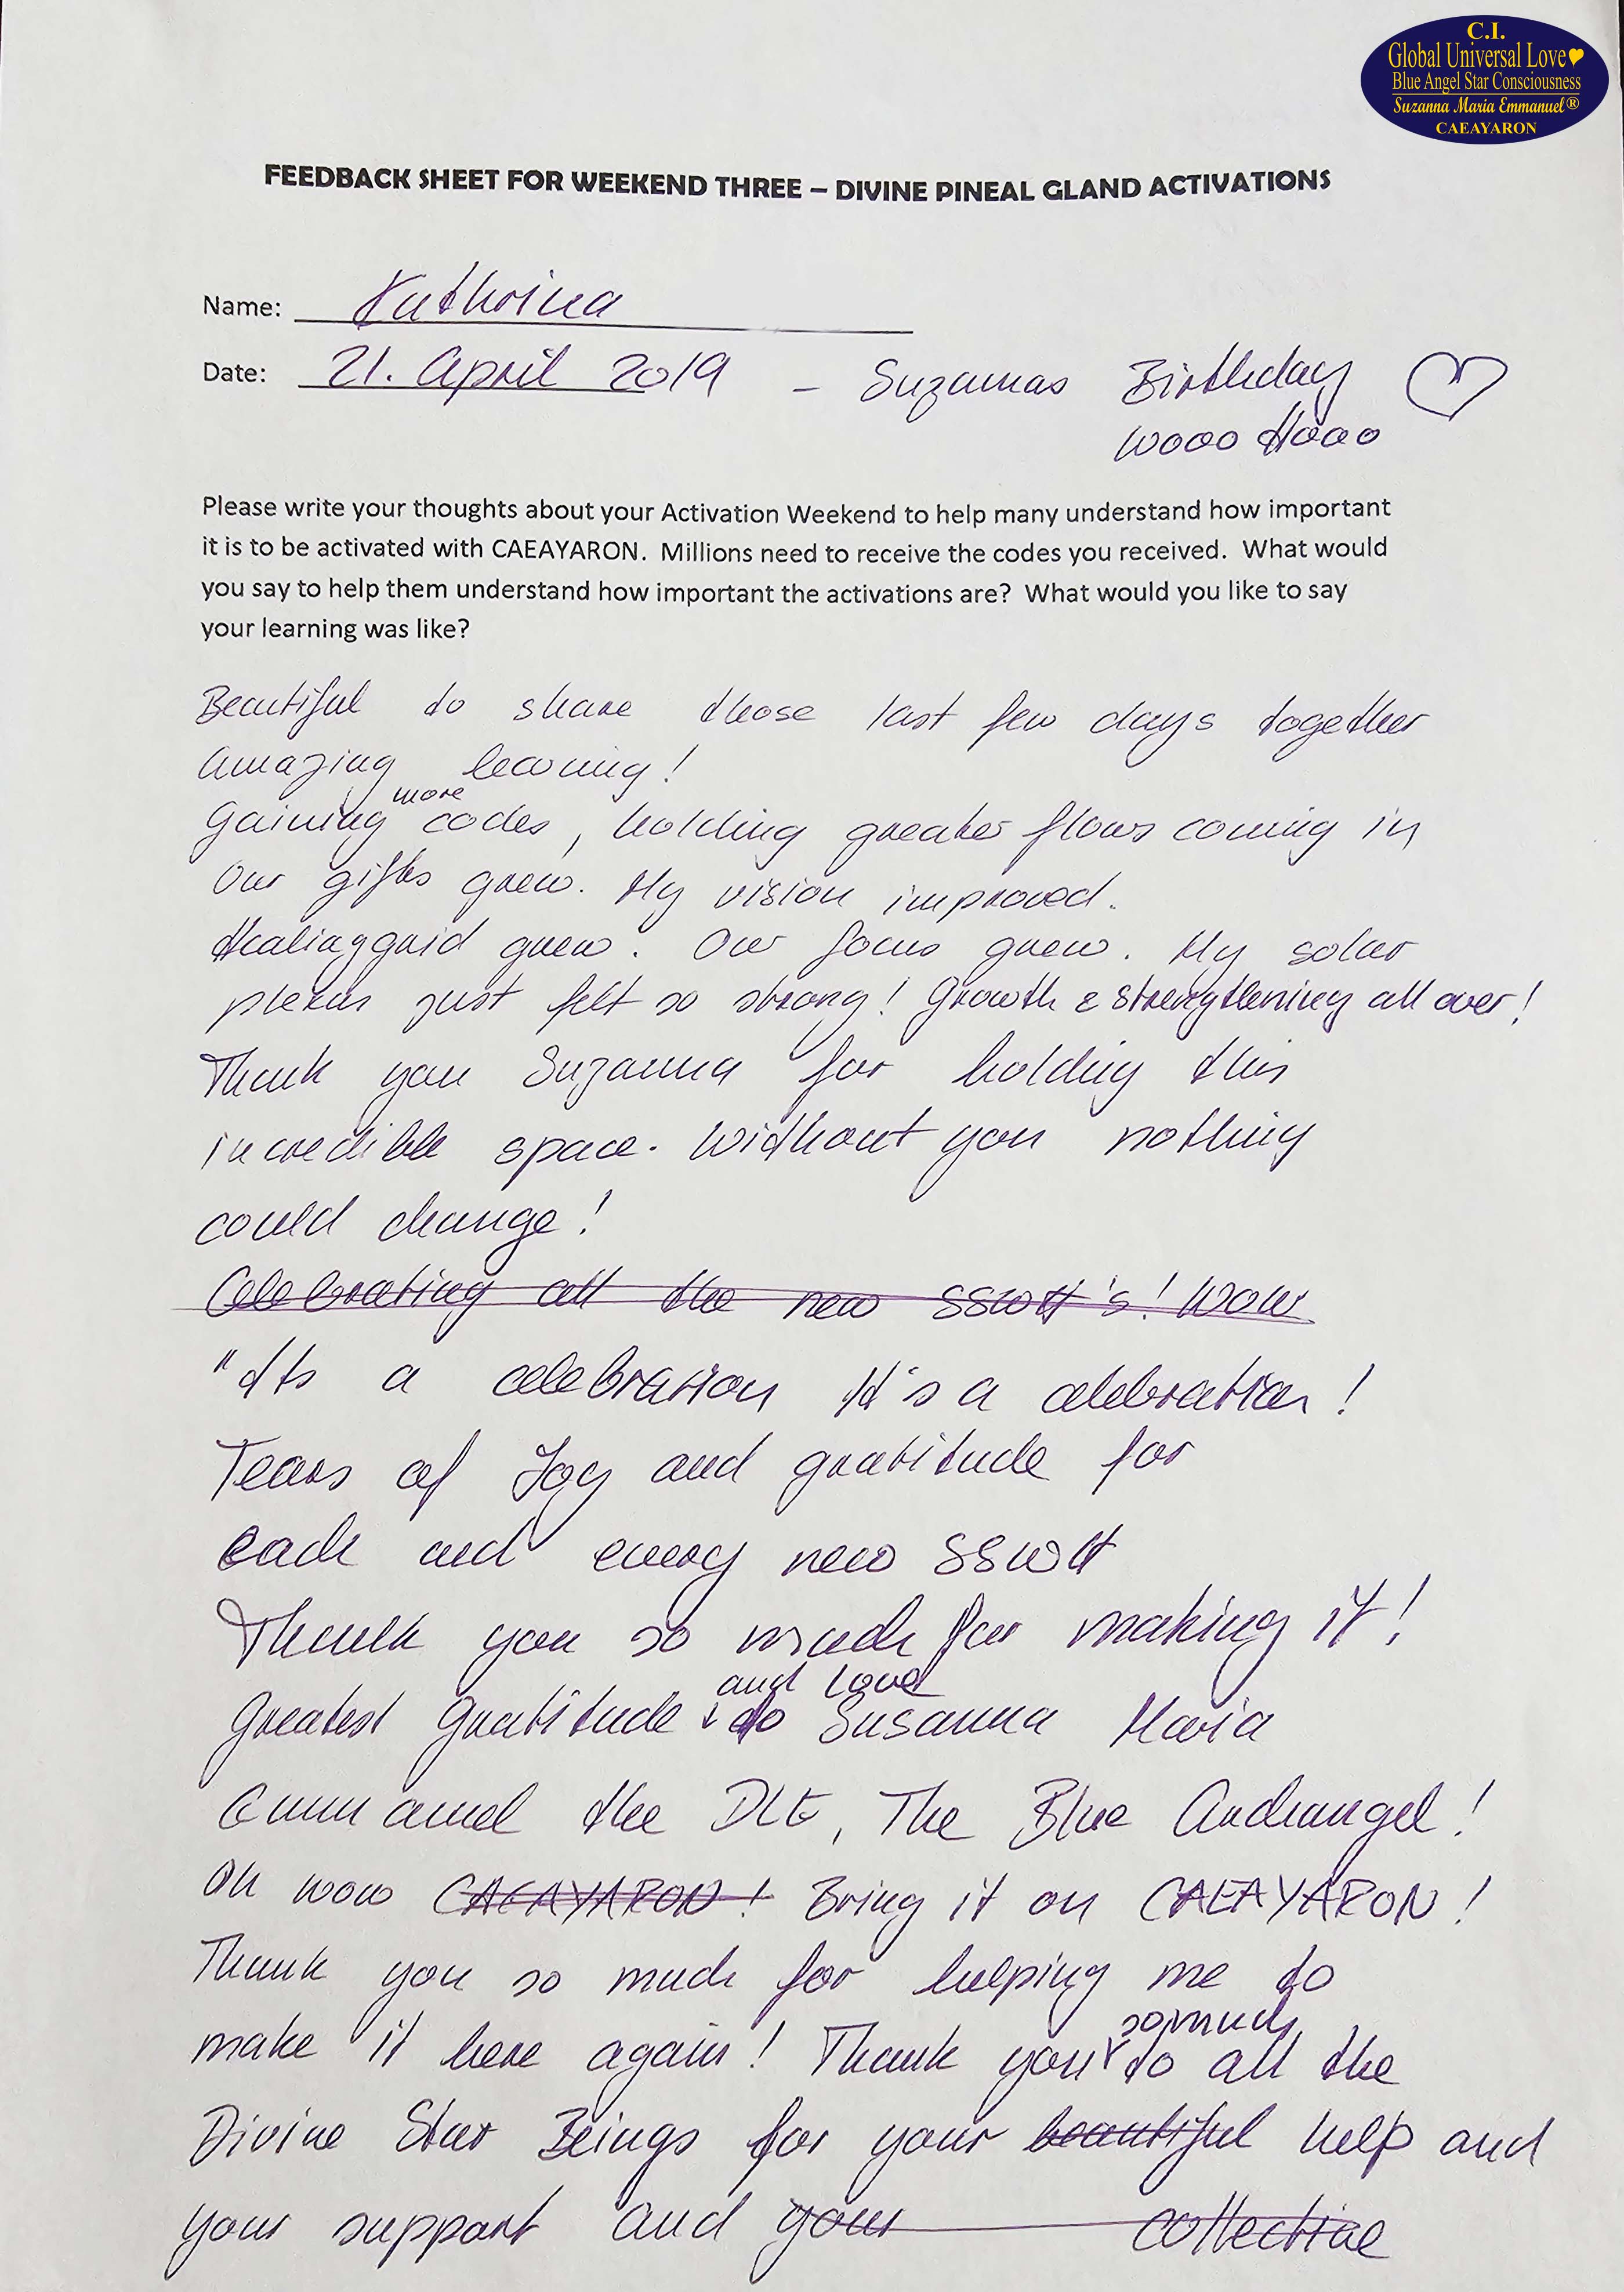 C.I.
Global Universal Love♥
Blue Angel Star Consciousness
Suzanna Maria Emmanuel®
CAEAYARON
FEEDBACK SHEET FOR WEEKEND THREE – DIVINE PINEAL GLAND ACTIVATIONS
Name: Kathrina
Date: 21. April 2019 - Suzannas Birthday ♡
Wooo Hooo
Please write your thoughts about your Activation Weekend to help many understand how important
it is to be activated with CAEAYARON. Millions need to receive the codes you received. What would
you say to help them understand how important the activations are? What would you like to say
your learning was like?
Beautiful to share those last few days together
Amazing learning!
Gaining more codes, holding greater flows coming in
Our gifts grew. My vision improved.
Healing grid grew. Our focus grew. My solar
plexus just felt so strong! Growth & strengthening all over!
Thank you Suzanna for holding this
incredible space. Without you nothing
could change!
Celebrating all the new SSWH's! Wow
"Its a celebration It's a celebration!
Tears of Joy and gratitude for
each and every new SSWH
Thank you so much for making it!
Greatest Gratitude and Love to Susanna Maria
Emmanuel the DLE, The Blue Archangel!
Oh wow CAEAYARON! Bring it on CAEAYARON!
Thank you so much for helping me to
make it here again! Thank you so much to all the
Divine Star Beings for your beautiful help and
your support and your collective